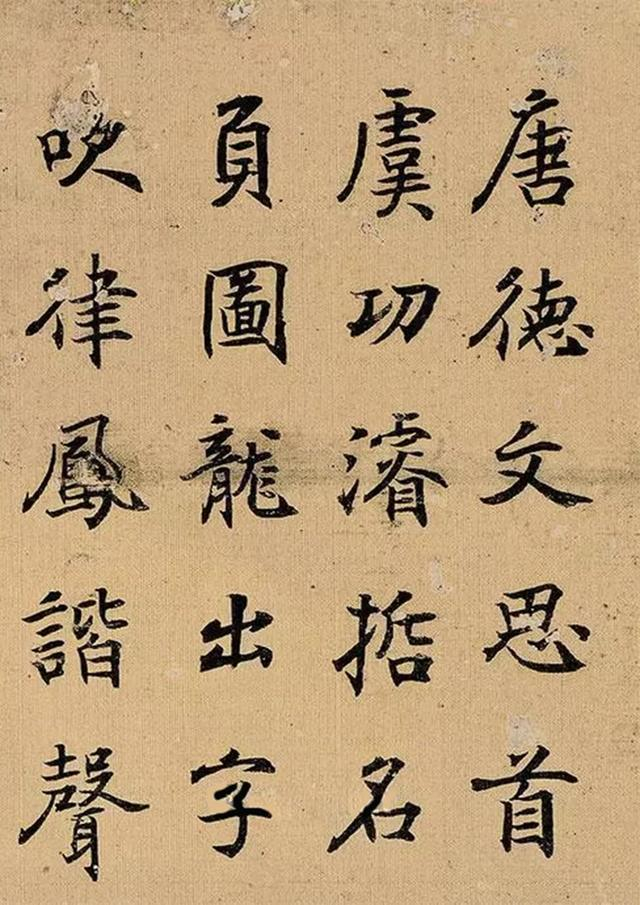 唐德文思首
虞功濬哲名
負圖龍出字
吹律鳳諧聲